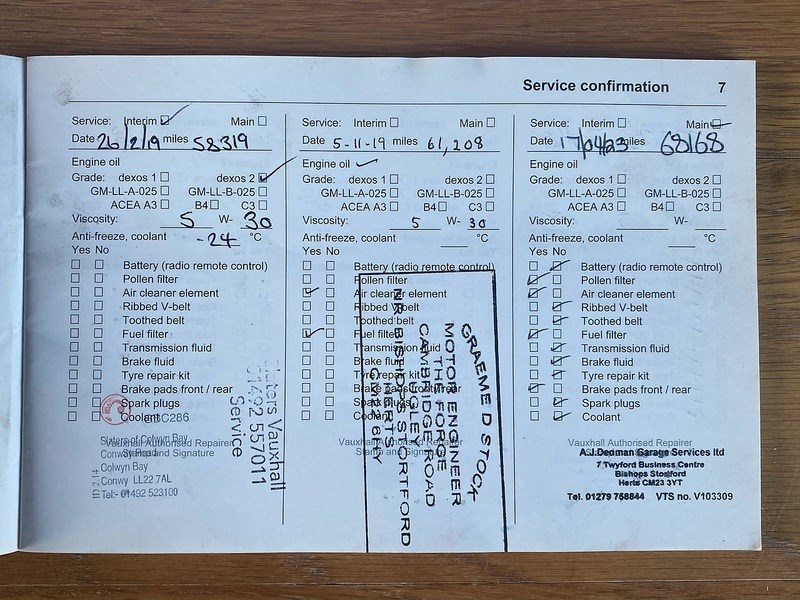 Service confirmation 7
Service: Interim Main
Date 26/2/19 miles 58319
Engine oil
Grade: dexos 1 dexos 2
GM-LL-A-025 GM-LL-B-025
ACEA A3 B4 C3
Viscosity: 5 W- 30
Anti-freeze, coolant -24 °C
Yes No
Battery (radio remote control)
Pollen filter
Air cleaner element
Ribbed V-belt
Toothed belt
Fuel filter
Transmission fluid
Brake fluid
Tyre repair kit
Brake pads front / rear
Spark plugs
Coolant
Vauxhall Authorised Repairer
Stamp and Signature
Sisters of Colwyn Bay
Conway Road
Colwyn Bay
Conwy LL22 7AL
Tel:- 01492 523100
Sisters Vauxhall
01492 557011
Service
Service: Interim Main
Date 5-11-19 miles 61,208
Engine oil
Grade: dexos 1 dexos 2
GM-LL-A-025 GM-LL-B-025
ACEA A3 B4 C3
Viscosity: 5 W- 30
Anti-freeze, coolant °C
Yes No
Battery (radio remote control)
Pollen filter
Air cleaner element
Ribbed V-belt
Toothed belt
Fuel filter
Transmission fluid
Brake fluid
Tyre repair kit
Brake pads front / rear
Spark plugs
Coolant
Vauxhall Authorised Repairer
Stamp and Signature
GRAEME D STOCK
MOTOR ENGINEER
THE FORGE
CAMBRIDGE ROAD
UGLEY
NR BISHOPS STORTFORD
HERTS
Service: Interim Main
Date 17/04/23 miles 68168
Engine oil
Grade: dexos 1 dexos 2
GM-LL-A-025 GM-LL-B-025
ACEA A3 B4 C3
Viscosity: W-
Anti-freeze, coolant °C
Yes No
Battery (radio remote control)
Pollen filter
Air cleaner element
Ribbed V-belt
Toothed belt
Fuel filter
Transmission fluid
Brake fluid
Tyre repair kit
Brake pads front / rear
Spark plugs
Coolant
Vauxhall Authorised Repairer
A.J.Dedman Garage Services ltd
7 Twyford Business Centre
Bishops Stortford
Herts CM23 3YT
Tel. 01279 758844 VTS no. V103309